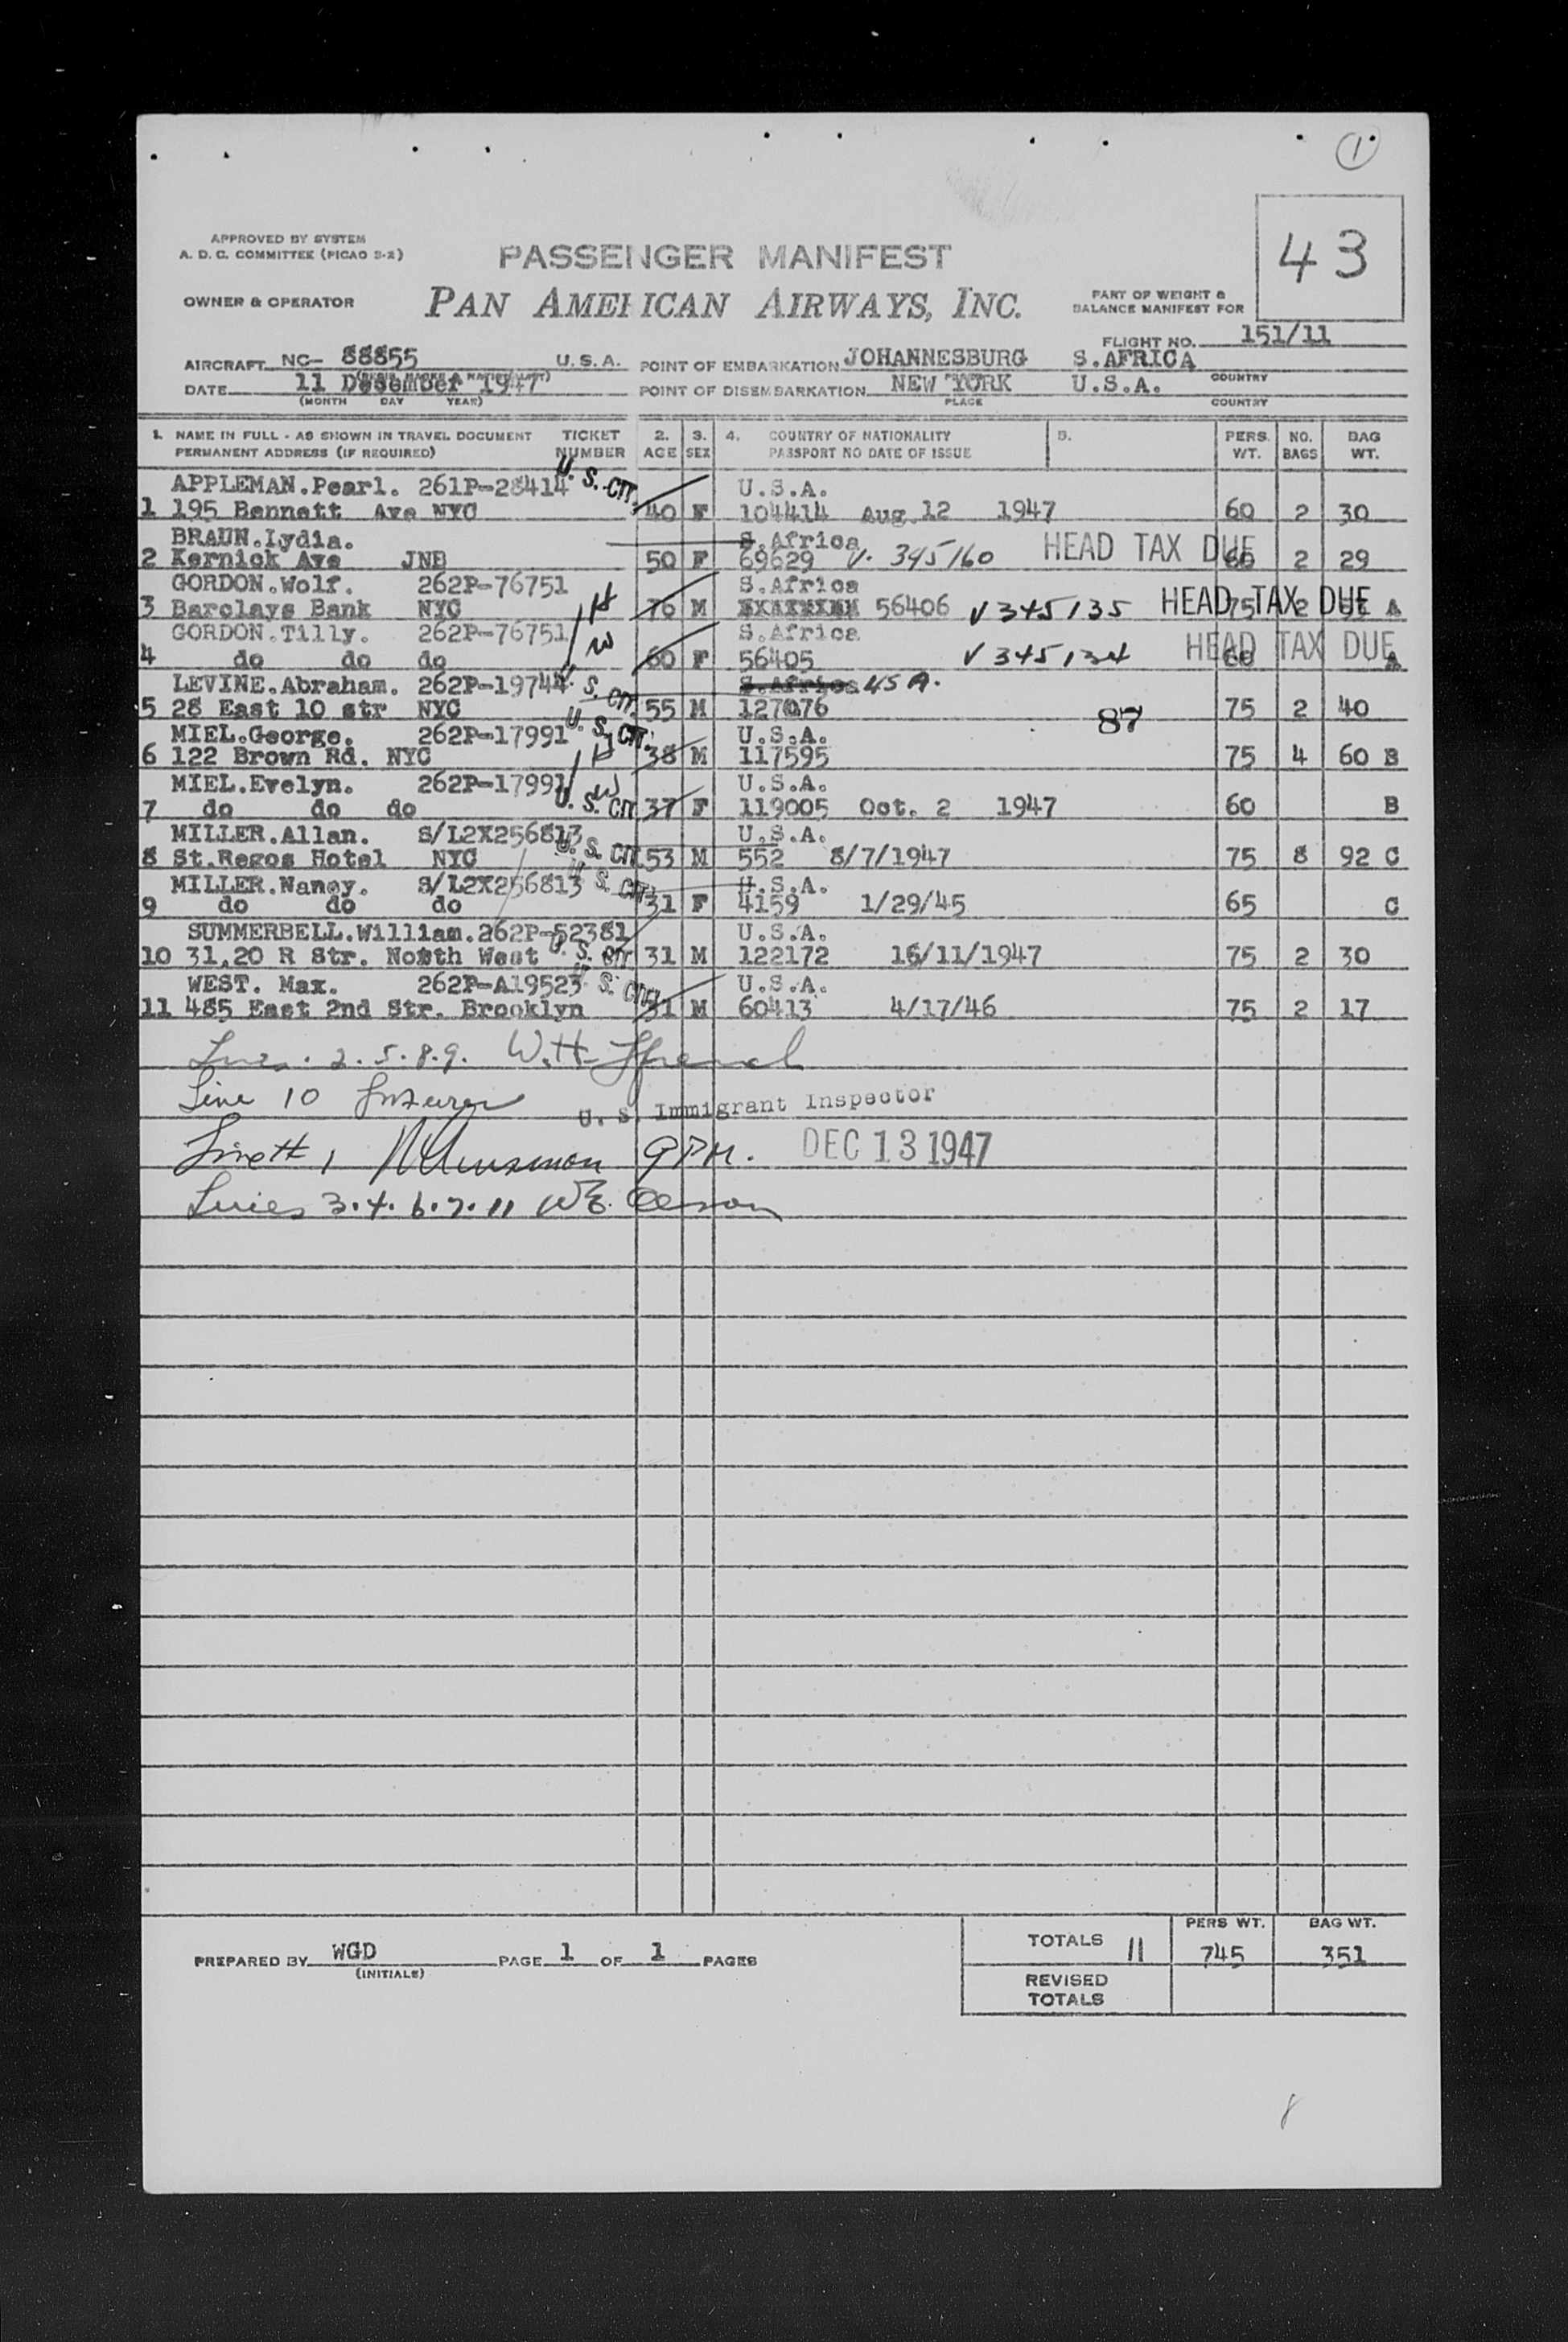 1
APPROVED BY SYSTEM
A. D. C. COMMITTEE (PICAO S-2)
PASSENGER MANIFEST
43
OWNER & OPERATOR
PAN AMERICAN AIRWAYS, INC.
PART OF WEIGHT &
BALANCE MANIFEST FOR
FLIGHT NO. 151/11
AIRCRAFT NC- 88855 U.S.A. POINT OF EMBARKATION JOHANNESBURG S.AFRICA
COUNTRY
DATE 11 December 1947 POINT OF DISEMBARKATION NEW YORK U.S.A.
(MONTH DAY YEAR) PLACE COUNTRY
1. NAME IN FULL - AS SHOWN IN TRAVEL DOCUMENT TICKET 2. 3. 4. COUNTRY OF NATIONALITY 5. PERS. NO. BAG
PERMANENT ADDRESS (IF REQUIRED) NUMBER AGE SEX PASSPORT NO DATE OF ISSUE WT. BAGS WT.
APPLEMAN.Pearl. 261P-28414 U. S. CIT. U.S.A.
1 195 Bennett Ave NYC 40 F 104414 Aug 12 1947 60 2 30
BRAUN.Lydia. S.Africa
2 Kernick Ave JNB 50 F 69629 V. 345160 HEAD TAX DUE 60 2 29
GORDON.Wolf. 262P-76751 S.Africa
3 Barclays Bank NYC H 76 M 56406 V 345135 HEAD TAX DUE 75 2 A
GORDON.Tilly. 262P-76751 S.Africa
4 do do do W 60 F 56405 V 345134 HEAD TAX DUE 60 A
LEVINE.Abraham. 262P-19744 U. S. CIT. S.Africa USA.
5 28 East 10 str NYC 55 M 127076 87 75 2 40
MIEL.George. 262P-17991 U. S. CIT. U.S.A.
6 122 Brown Rd. NYC H 38 M 117595 75 4 60 B
MIEL.Evelyn. 262P-17991 W U.S.A.
7 do do do U. S. CIT 37 F 119005 Oct. 2 1947 60 B
MILLER.Allan. S/L2X256813 U.S.A.
8 St.Regos Hotel NYC U. S. CIT 53 M 552 8/7/1947 75 8 92 C
MILLER.Nancy. S/L2X256813 U. S. CIT. U.S.A.
9 do do do 31 F 4159 1/29/45 65 C
SUMMERBELL.William.262P-52381 U.S.A.
10 31,20 R Str. North West U. S. CIT 31 M 122172 16/11/1947 75 2 30
WEST. Max. 262P-A19523 U. S. CIT. U.S.A.
11 485 East 2nd Str. Brooklyn 31 M 60413 4/17/46 75 2 17
Lines. 2. 5. 8. 9. W.H.
Line 10
U. S. Immigrant Inspector
Line # 1 9 P.M. DEC 13 1947
Lines 3. 4. 6. 7. 11
PREPARED BY WGD PAGE 1 OF 1 PAGES
(INITIALS)
PERS WT. BAG WT.
TOTALS 11 745 351
REVISED
TOTALS